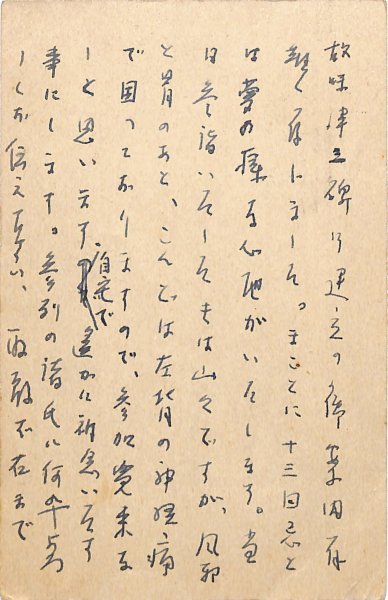 故味津三碑の建立の御案内有
難く存じました。まことに十三回忌と
は夢の様な心地がいたします。当
日参詣いたしたきは山々ですが、風邪
と胃のあと、こんどは左背の神経痛
で困っておりますので、参加覚束な
しと思います 自宅で 遙かに祈念いたす
事にします。参列の諸氏に何卒よろ
しくお伝え下さい、 取敢不右まで